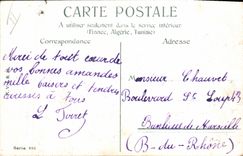 CARTE POSTALE
A utiliser seulement dans le service intérieur
(France, Algérie, Tunisie)
Correspondance
Adresse
Merci de tout cœur de
vos bonnes amandes
mille baisers et tendres
caresses à tous
L Torret
Monsieur Chauvet
Boulevard St Loup 43
Banlieue de Marseille
(B.-du-Rhône)